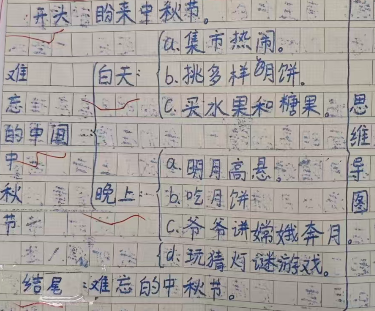 开头 盼来中秋节。
a.集市热闹。
难 白天: b.挑多样月饼。
忘 c.买水果和糖果。 思
的 中间 维
中 a.明月高悬。 导
秋 晚上: b.吃月饼 图
节 c.爷爷讲嫦娥奔月。
d.玩猜灯谜游戏。
结尾:难忘的中秋节。